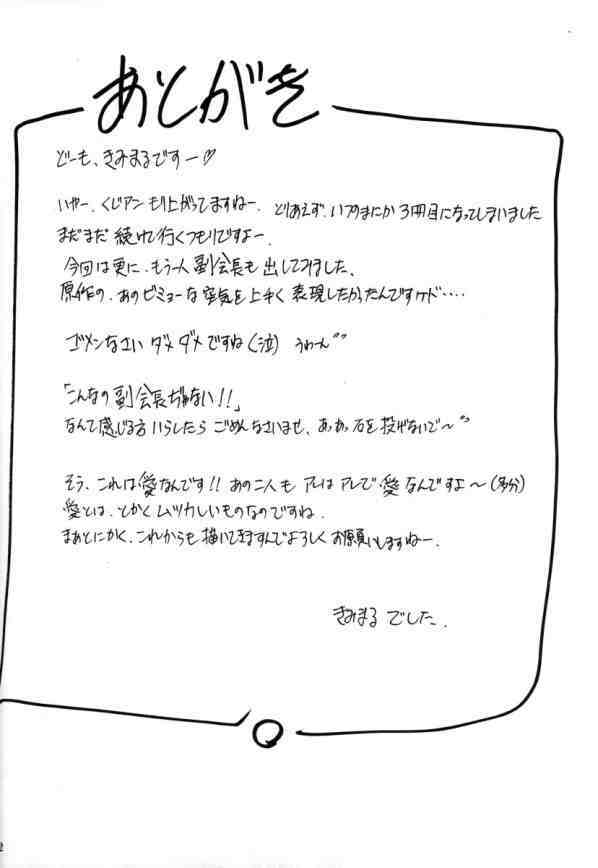 あとがき
どーも、きみまるですー♡
いやー、くじアンもり上がってますねー、とりあえず、いつのまにか3冊目になってしまいました
まだまだ続けて行くつもりですよー。
今回は更に、もう一人副会長も出してみました、
原作の、あのビミョーな空気を上手く表現したかったんですケド‥‥
ゴメンなさい ダメダメですね(泣) うわーん
「こんなの副会長ぢゃない!!」
なんて感じる方いらしたらごめんなさいませ、あっあっ石を投げないで〜
そう、これは愛なんです!! あの二人もアレはアレで愛なんですよ〜(多分)
愛とは、とかくムツカしいものなのですね、
まぁとにかく、これからも描いてきますんでよろしくお願いしますねー、
きみまるでした、
2